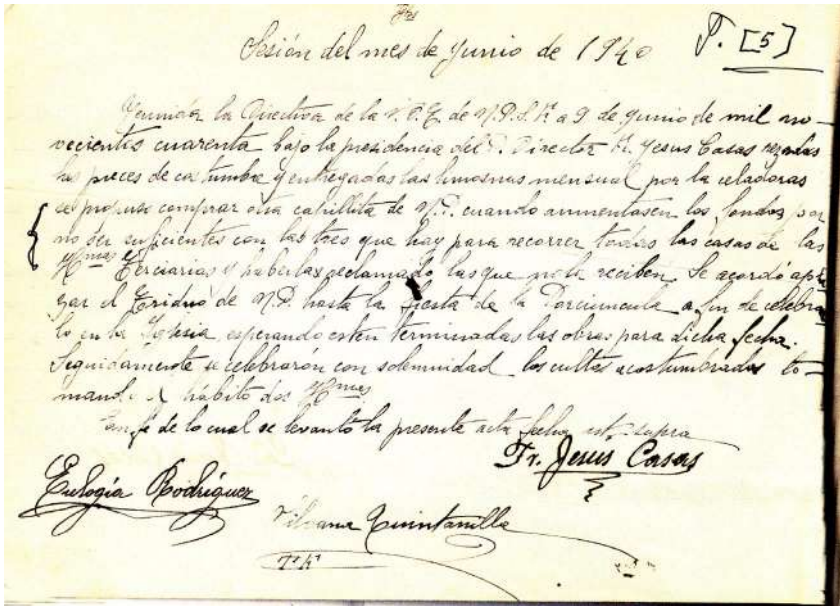 Sesión del mes de Junio de 1940 P. [5]
Reunida la Directiva de la V.O.T. de N.P.S.F. a 9 de junio de mil no-
vecientos cuarenta bajo la presidencia del P. Director Fr. Jesus Casas rezadas
las preces de costumbre y entregadas las limosnas mensual por la celadoras
se propuso comprar otra capillita de N.P. cuando aumentasen los fondos por
no ser suficientes con las tres que hay para recorrer todas las casas de las
Hmas Terciarias y haberlas reclamado las que no la reciben. Se acordó
el Triduo de N.P. hasta la fiesta de la Porciuncula a fin de celebra
lo en la Iglesia, esperando esten terminadas las obras para dicha fecha.
Seguidamente se celebrarón con solemnidad los cultos acostumbrados to-
mando hábito dos Hmas
fe de lo cual se levantó la presente acta fecha ut supra
Fr. Jesus Casas
Eulogia Rodriguez
Quintanilla